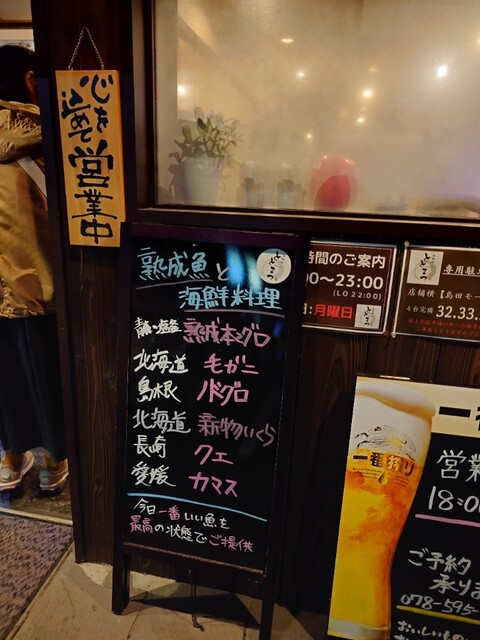 心を
込めて
営業中
熟成魚と
海鮮料理
熟成本マグロ
北海道 毛ガニ
島根 ノドグロ
北海道 新物いくら
長崎 クエ
愛媛 カマス
今日一番いい魚を
最高の状態でご提供
時間のご案内
00～23:00
(LO 22:00)
日:月曜日
専用駐
店舗横【島田モー
4台完備 32.33.
一番搾り
一
営業
18:00
ご予約
承りま
078-595-
おいしいもの